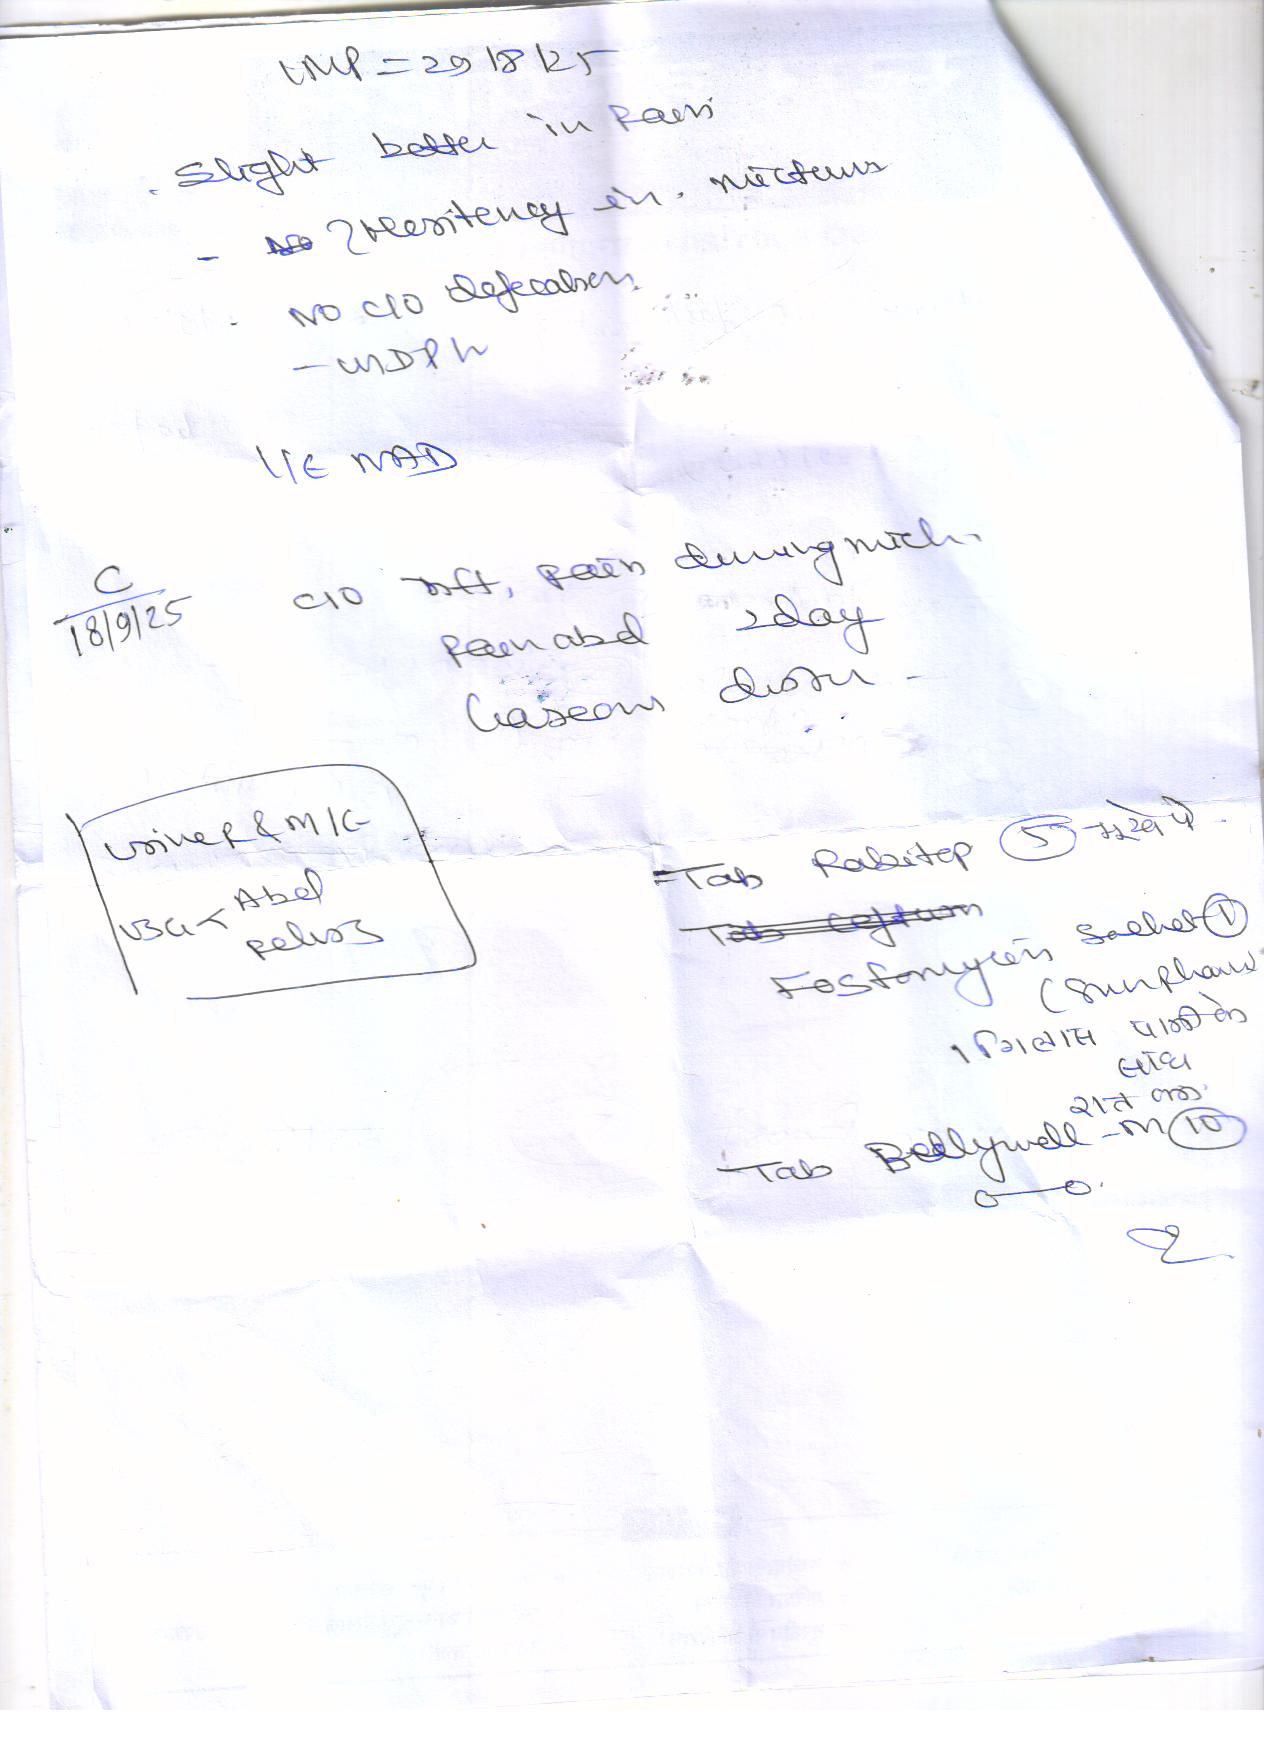 LMP = 29/8/25
. Slight better in Pain
- No ? Hesitency in. micturis
. NO C/O defecation.
L/E NAD
C
18/9/25
C/O pain during mict.
Pain abd 2day
Gaseous disten -
Urine R & M/E
USG < Abd
Pelvis
- Tab Rabitop 5 भूखे पे
Fosfomycin Sachet 1
(Sunpharm
1 गिलास पानी के
साथ
रात को
- Tab Bellywell - M 10
0—0